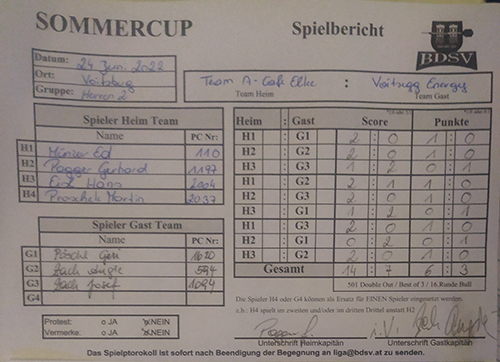 SOMMERCUP Spielbericht
BDSV
Datum: 24 Juni 2022
Ort: Voitsberg
Gruppe: Herren 2
Team A-Cafe Elke : Voitsegg Energy
Team Heim Team Gast
Spieler Heim Team
Name PC Nr:
H1 Ed 110
H2 Pogger Gerhard 1197
H3 Hans 2004
H4 Proschek Martin 2037
Spieler Gast Team
Name PC Nr:
G1 Geri 1620
G2 594
G3 Josef 1094
G4
Heim : Gast Score Punkte
H1 : G1 2 : 0 1 : 0
H2 : G2 2 : 0 1 : 0
H3 : G3 1 : 2 0 : 1
H1 : G2 2 : 1 1 : 0
H2 : G3 2 : 1 1 : 0
H3 : G1 1 : 2 0 : 1
H1 : G3 2 : 0 1 : 0
H2 : G1 0 : 2 0 : 1
H3 : G2 2 : 0 1 : 0
Gesamt 14 : 7 6 : 3
501 Double Out / Best of 3 / 16.Runde Bull
Die Spieler H4 oder G4 können als Ersatz für EINEN Spieler eingesetzt werden.
z.b.: H4 spielt im zweiten und/oder im dritten Drittel anstatt H2
Protest: o JA NEIN
Vermerke: o JA NEIN
i.V.
Unterschrift Heimkapitän Unterschrift Gastkapitän
Das Spielprotokoll ist sofort nach Beendigung der Begegnung an liga@bdsv.at zu senden.